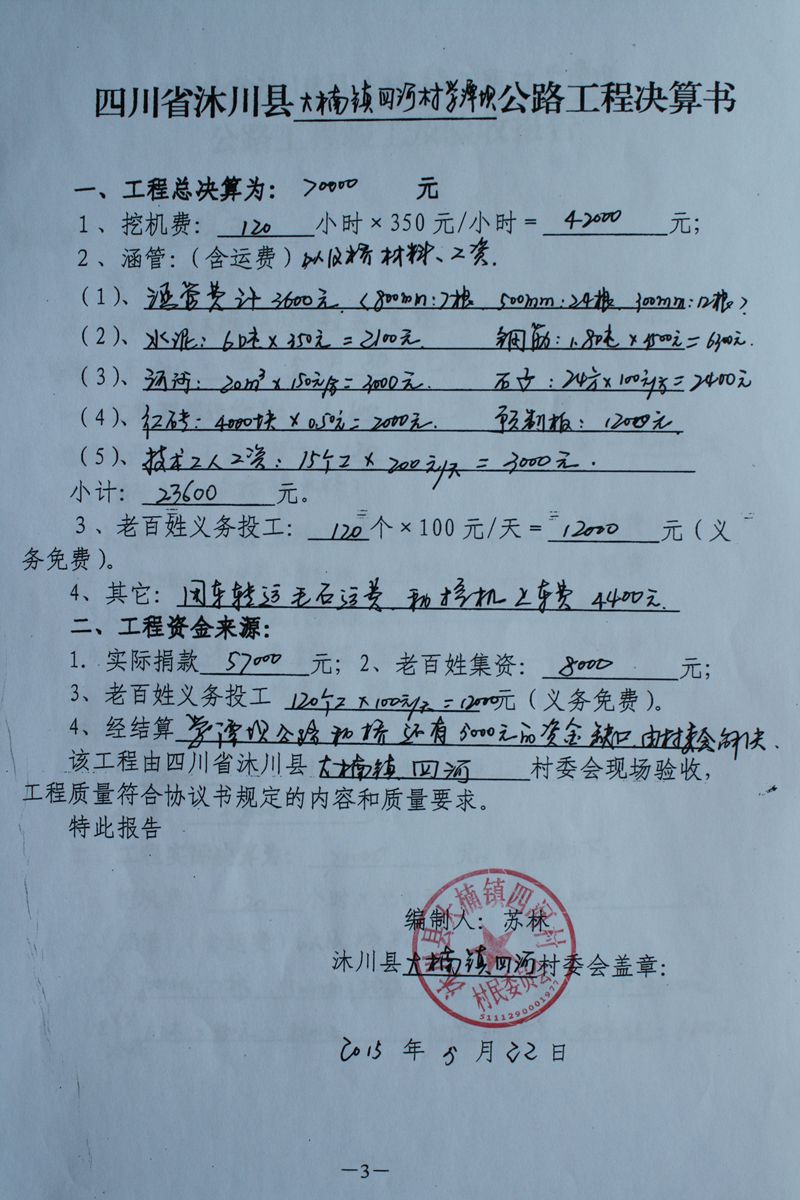 四川省沐川县大楠镇四河村学潭坝公路工程决算书
一、工程总决算为：70000 元
1、挖机费：120小时×350元/小时=42000元；
2、涵管：(含运费)以及桥材料、工资.
(1)、涵管费计3600元.(800mm:7根 500mm:24根 300mm:12根)
(2)、水泥：6吨×350元=2100元. 钢筋：1.80吨×3500元=6300元.
(3)、河沙：20m³×150元/方=3000元. 石子：24方×100元/方=2400元
(4)、红砖：4000块×0.50元=2000元. 预制板：1200元.
(5)、技术工人工资：15个工×200元/天=3000元.
小计：23600元。
3、老百姓义务投工：120个×100元/天=12000元（义
务免费）。
4、其它：因车转运毛石运费和挖机上车费4400元.
二、工程资金来源：
1. 实际捐款57000元；2、老百姓集资：8000元；
3、老百姓义务投工120个工×100元/天=12000元（义务免费）。
4、经结算学潭坝公路和桥还有5000元的资金缺口由村委会解决.
该工程由四川省沐川县大楠镇四河村委会现场验收，
工程质量符合协议书规定的内容和质量要求。
特此报告
编制人：苏林
沐川县大楠镇四河村委会盖章：
沐川县大楠镇四河村
村民委员会
5111290001977
2015年5月22日
—3—